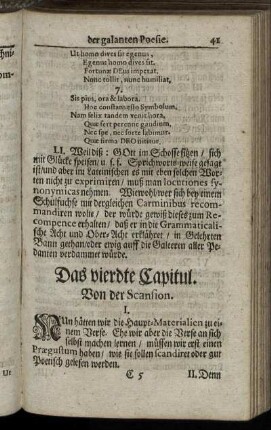 der galanten Poesie. 41
Ut homo dives sit egenus,
Egenus homo dives sit.
Fortunæ DEus imperat.
Nunc tollit, nunc humiliat,
7.
Sis pius, ora & labora.
Hoc constans esto Symbolum.
Nam felix tandem venit hora,
Quæ fert perenne gaudium,
Nec spe, nec forte labimur,
Quæ firma DEO nititur.
LI. Weil diß: GOtt im Schosse sitzen / sich
mit Glücke speisen / u. s. f. Sprichworts-weise gesagt
ist / und aber im Lateinischen es mit eben solchen Wor-
ten nicht zu exprimiren / muß man locutiones sy-
nonymicas nehmen. Wiewohl wer sich bey einem
Schulfuchse mit dergleichen Carminibus recom-
mandiren wolte / der würde gewiß dieses zum Re-
compence erhalten / daß er in die Grammaticali-
sche Acht und Ober-Acht erklähret / in Gelehrten
Bann gethan / oder ewig auff die Galeeren aller Pe-
danten verdammet würde.
Das vierdte Capitul.
Von der Scansion.
I.
NUn hätten wir die Haupt-Materialien zu ei-
nem Verse. Ehe wir aber die Verse an sich
selbst machen lernen / müssen wir erst einen
Prægustum haben / wie sie sollen scandiret oder gut
Poetisch gelesen werden.
C 5 II. Denn